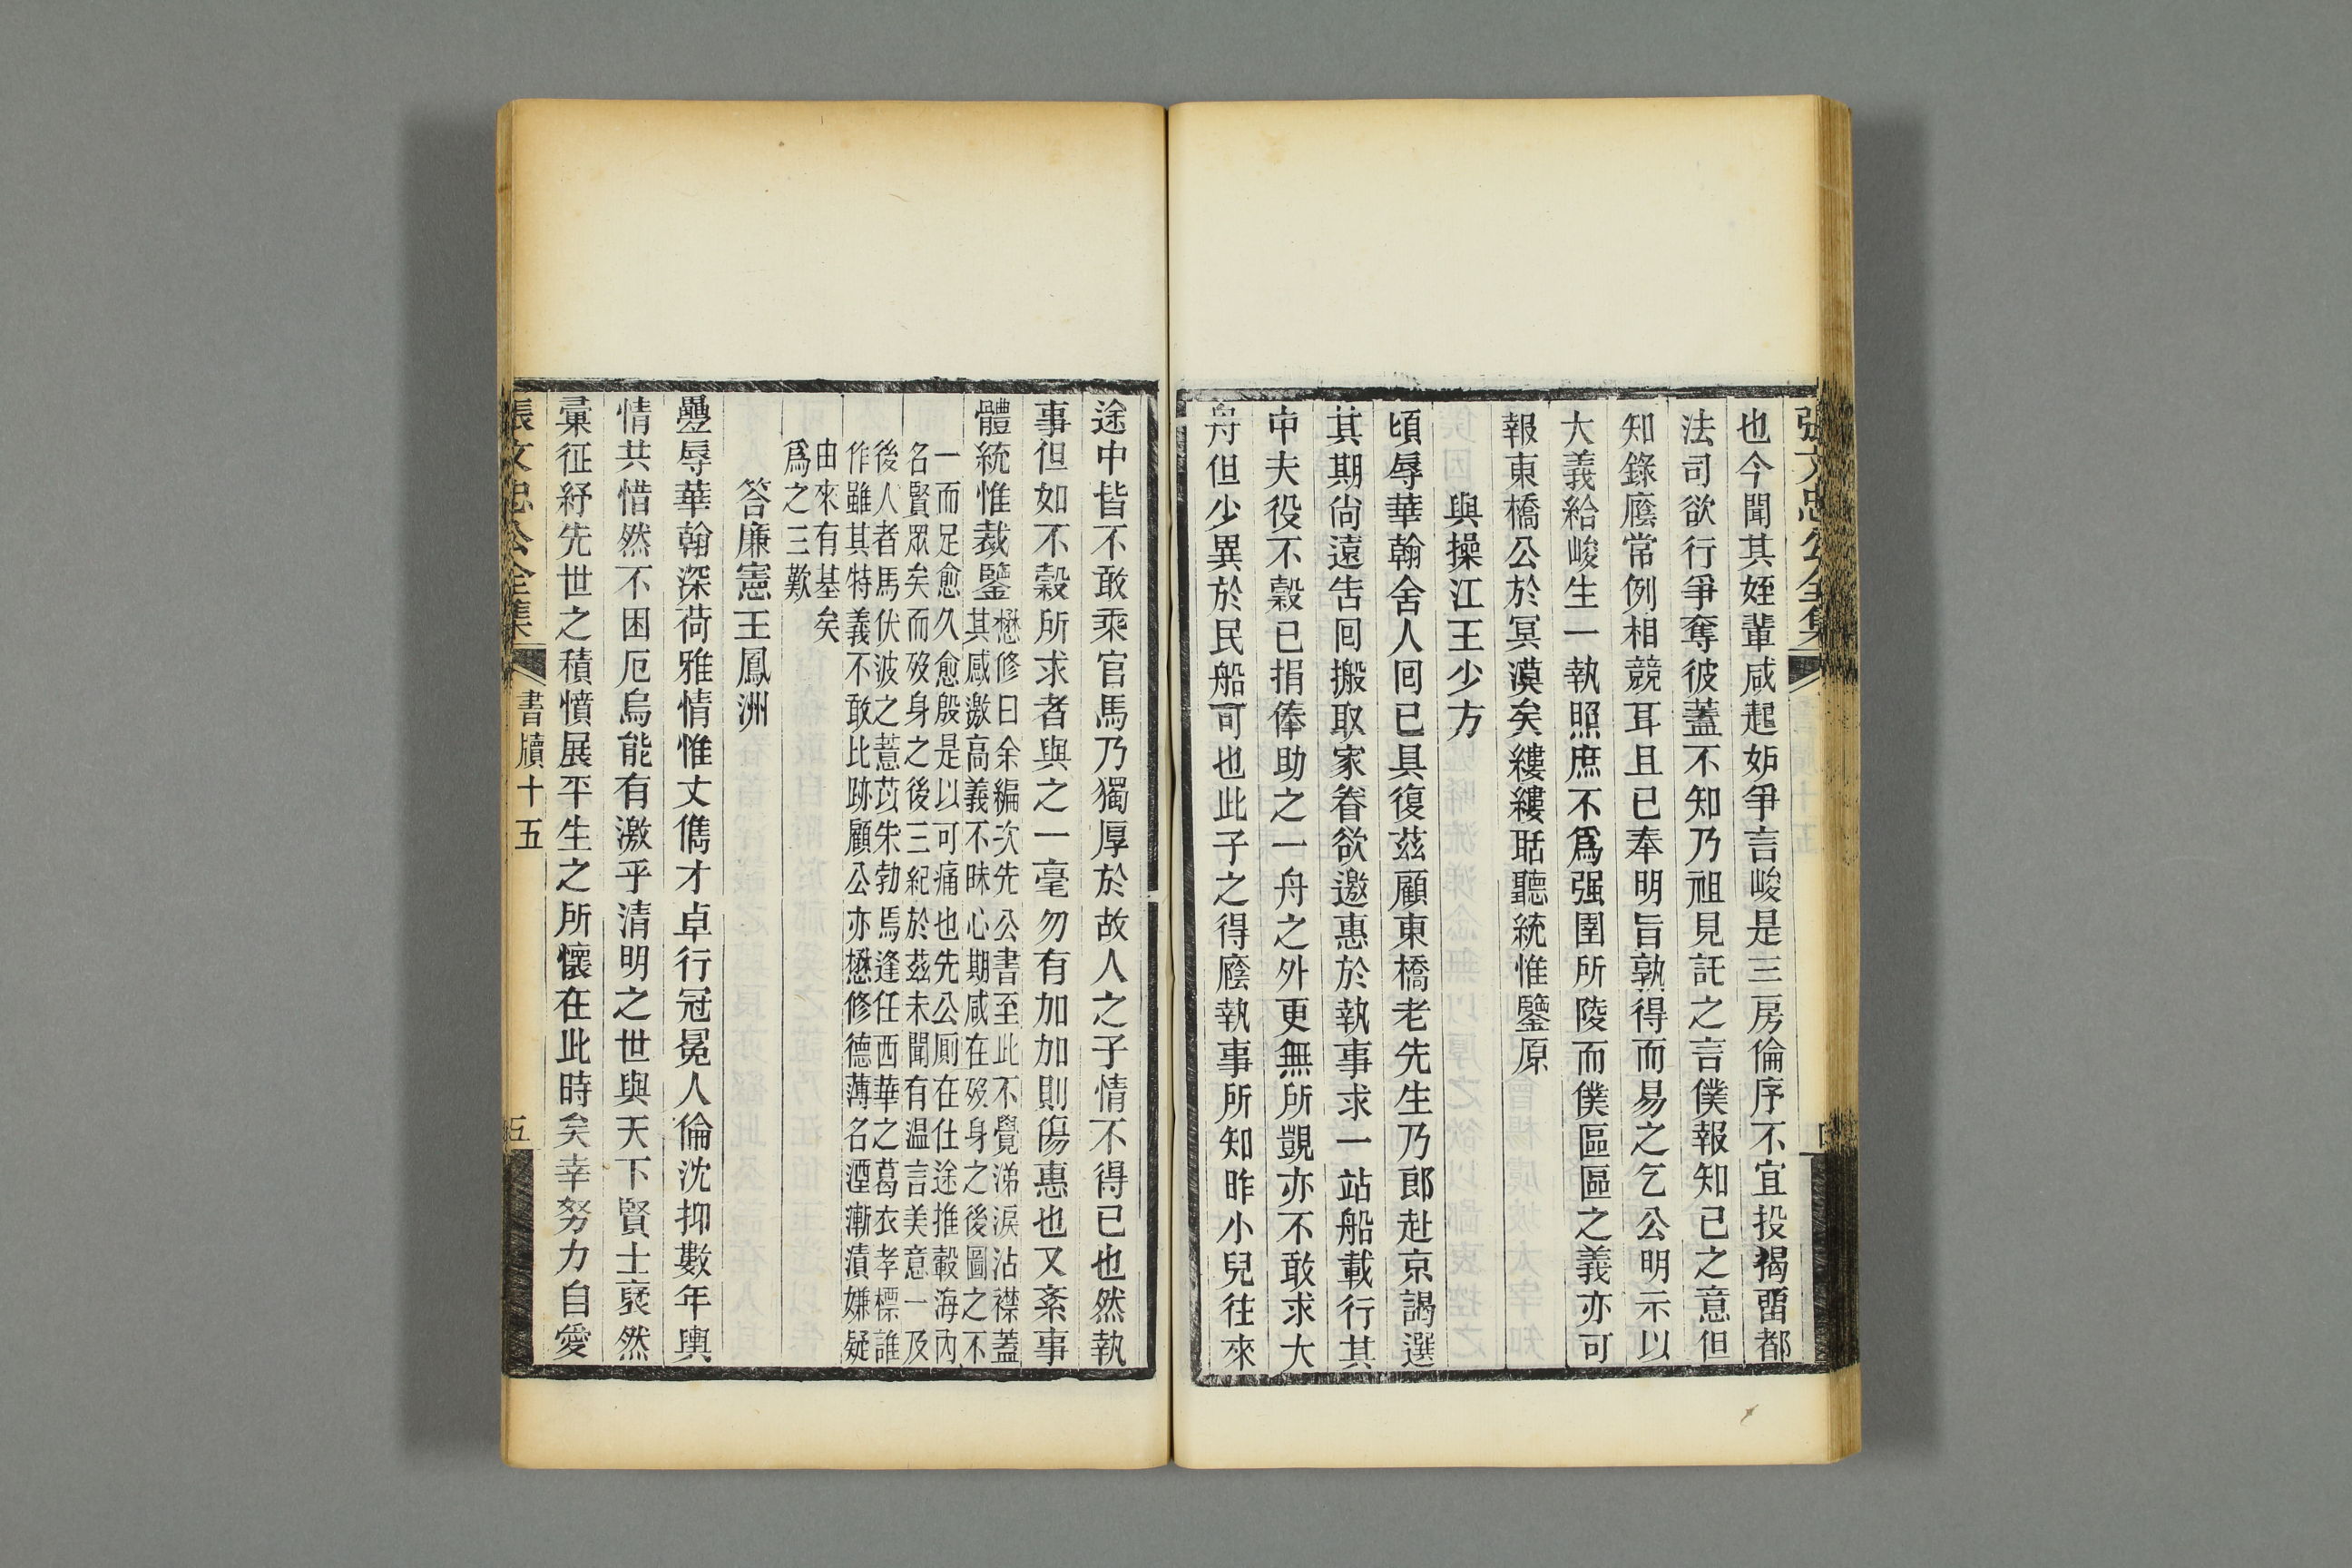 張文忠公全集
也今聞其姪輩咸起妒爭言峻是三房倫序不宜投揭留都
法司欲行爭奪彼蓋不知乃祖見託之言僕報知己之意但
知錄廕常例相競耳且已奉明旨孰得而易之乞公明示以
大義給峻生一執照庶不爲强圉所陵而僕區區之義亦可
報東橋公於冥漠矣縷縷聒聽統惟鑒原
與操江王少方
頃辱華翰舍人回已具復茲顧東橋老先生乃郎赴京謁選
其期尙遠告囘搬取家眷欲邀惠於執事求一站船載行其
中夫役不穀已捐俸助之一舟之外更無所覬亦不敢求大
舟但少異於民船可也此子之得廕執事所知昨小兒往來
途中皆不敢乘官馬乃獨厚於故人之子情不得已也然執
事但如不穀所求者與之一毫勿有加加則傷惠也又紊事
體統惟裁鑒
懋修曰余編次先公書至此不覺涕淚沾襟蓋
其感激高義不昧心期咸在歿身之後圖之不
一而足愈久愈殷是以可痛也先公厠在仕途推轂海內
名賢眾矣而歿身之後三紀於茲未聞有温言美意一及
後人者馬伏波之薏苡朱勃焉逢任西華之葛衣孝標誰
作雖其特義不敢比跡顧公亦懋修德薄名湮漸漬嫌疑
由來有基矣
爲之三歎
答廉憲王鳳洲
疊辱華翰深荷雅情惟丈儁才卓行冠冕人倫沈抑數年輿
情共惜然不困厄烏能有激乎清明之世與天下賢士褎然
彙征紓先世之積憤展平生之所懷在此時矣幸努力自愛
張文忠公全集
書牘十五
五